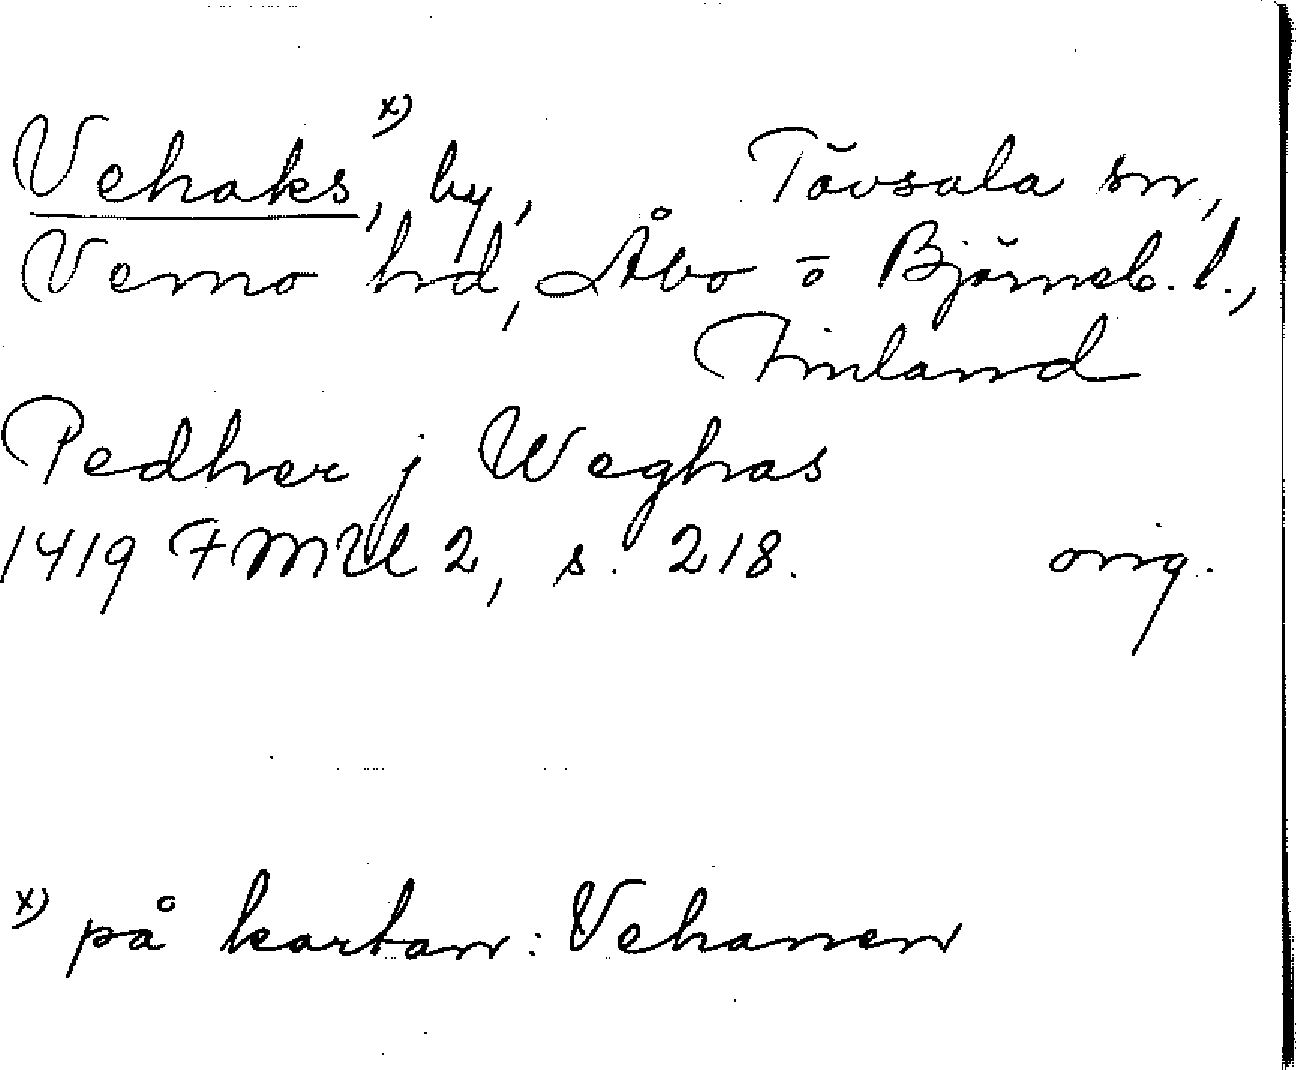 Vehaks, x) by, Tövsala sn,
Vemo hd, Åbo o Björneb. l.,
Finland
Pedher j Weghas
1419 FMU 2, s. 218. orig.
x) på kartan: Vehanen